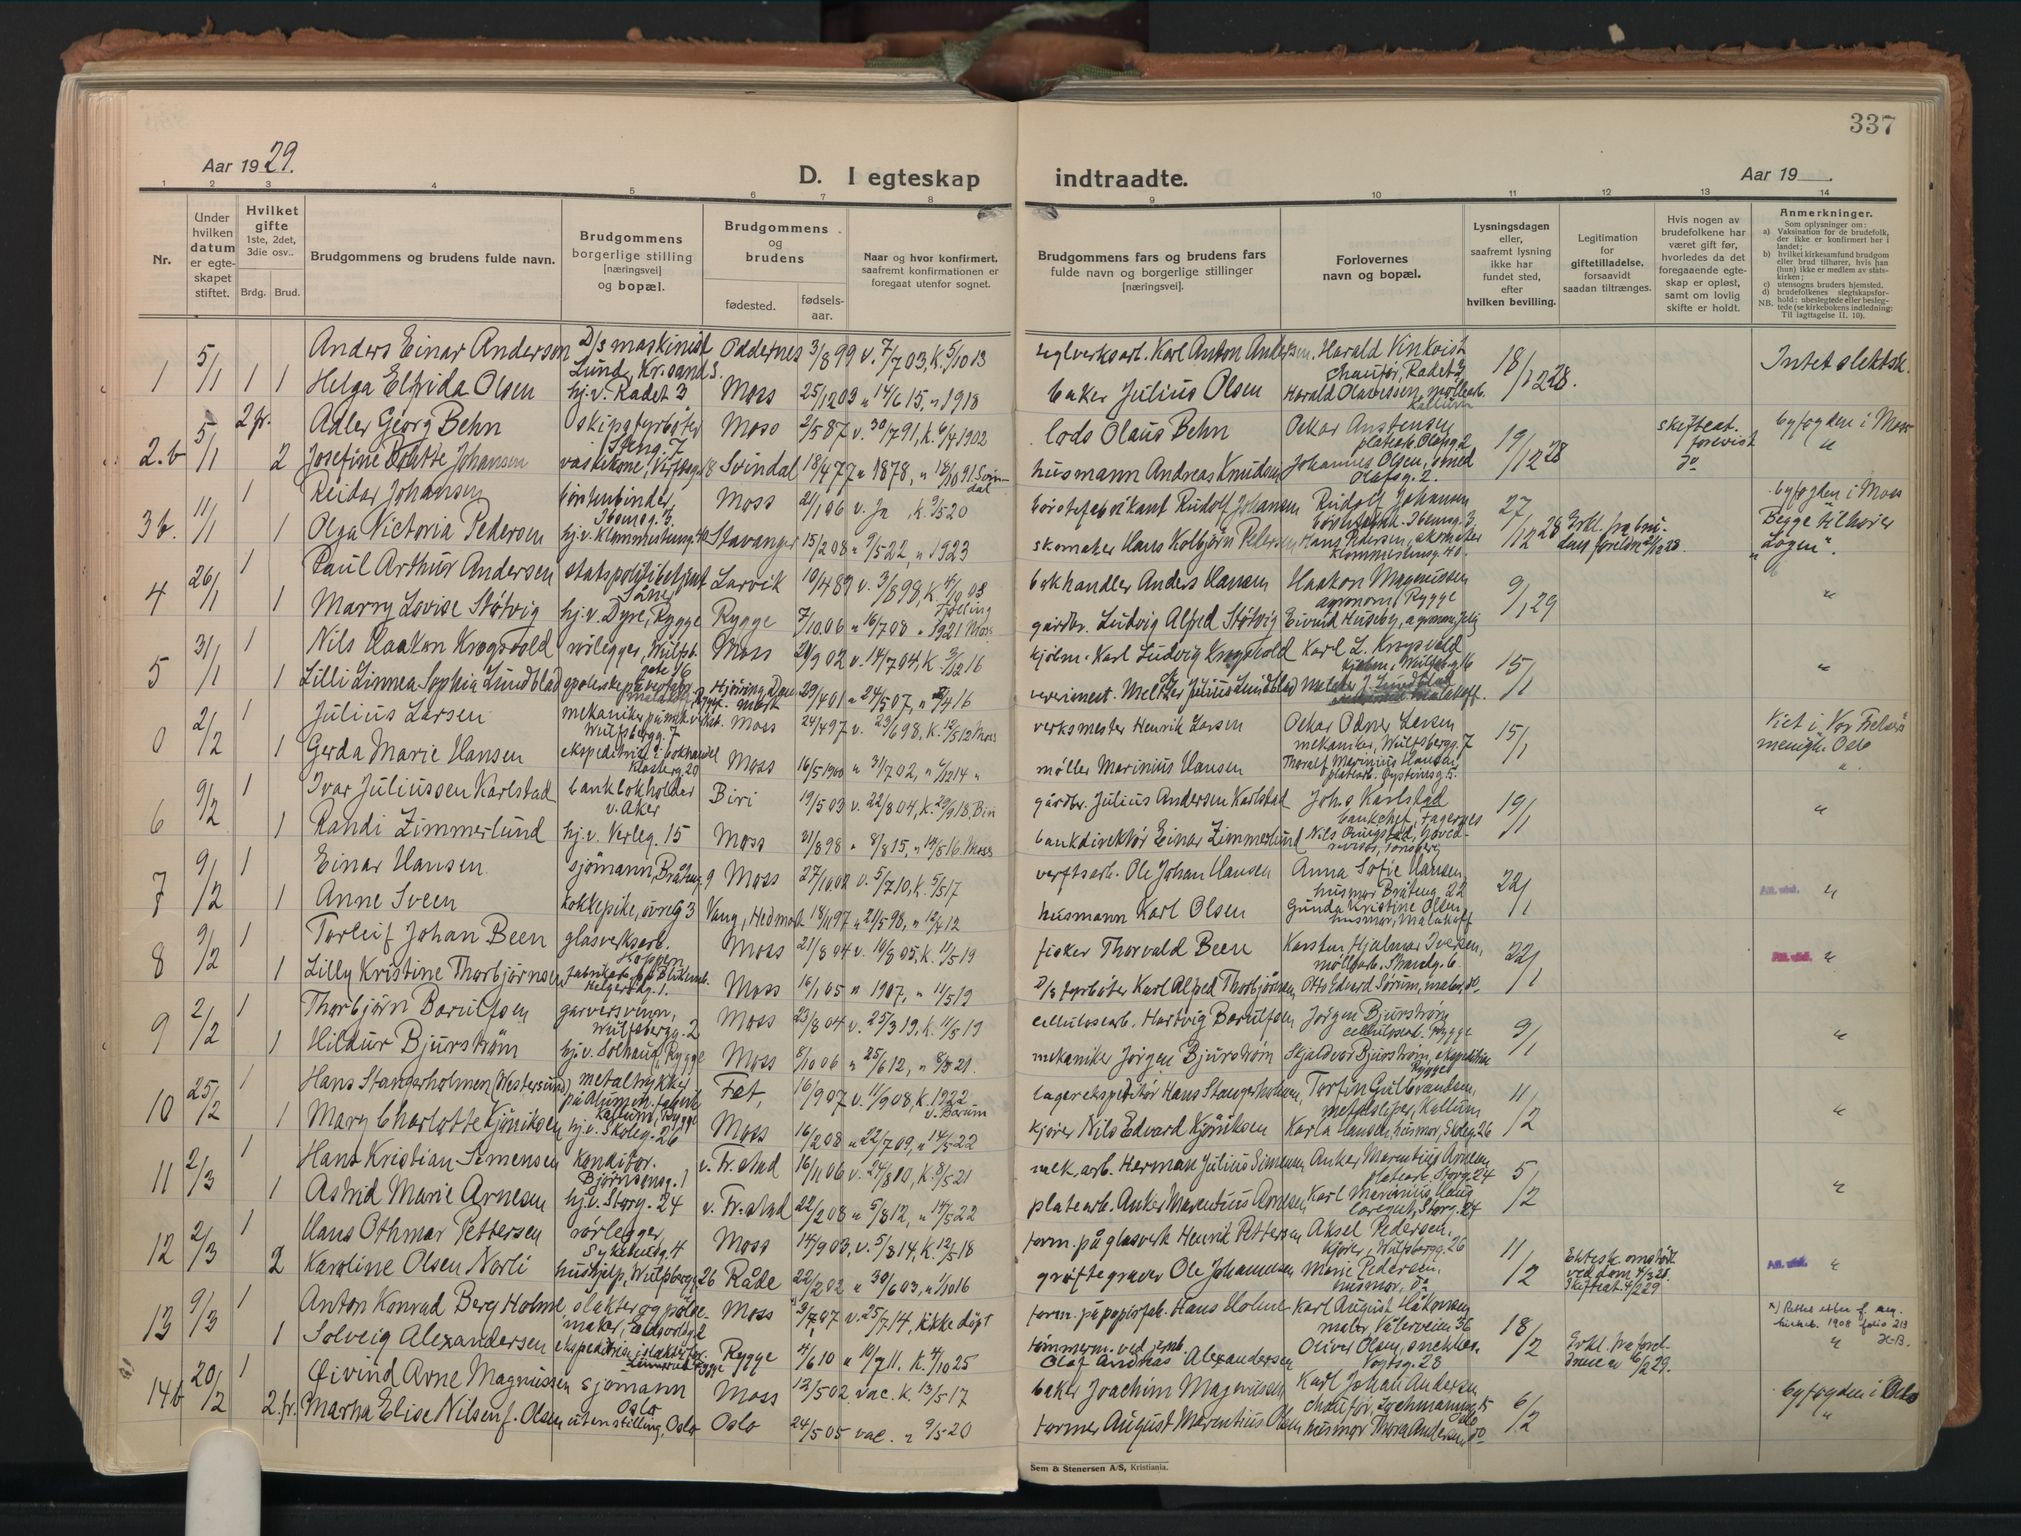 337
Aar 1929.
D. I egteskap indtraadte.
Aar 19
1 2 3 4 5 6 7 8 9 10 11 12 13 14
Nr.
Under hvilken datum er egteskapet stiftet.
Hvilket gifte 1ste, 2det, 3die osv..
Brdg. Brud.
Brudgommens og brudens fulde navn.
Brudgommens borgerlige stilling [næringsvei] og bopæl.
Brudgommens og brudens
fødested.
fødselsaar.
Naar og hvor konfirmert, saafremt konfirmationen er foregaat utenfor sognet.
Brudgommens fars og brudens fars fulde navn og borgerlige stillinger [næringsvei].
Forlovernes navn og bopæl.
Lysningsdagen eller, saafremt lysning ikke har fundet sted, efter hvilken bevilling.
Legitimation for giftetilladelse, forsaavidt saadan tiltrænges.
Hvis nogen av brudefolkene har været gift før, hvorledes da det foregaaende egteskap er opløst, samt om lovlig skifte er holdt.
Anmerkninger.
Som oplysninger om:
a) Vaksination for de brudefolk, der ikke er konfirmert her i landet;
b) hvilket kirkesamfund brudgom eller brud tilhører, hvis han (hun) ikke er medlem av statskirken;
c) utensogns bruders hjemsted.
d) brudefolkenes slegtskapsforhold: ubeslegtede eller beslegtede (se kirkebokens indledning: Til iagttagelse II. 10).
NB.
1 5/1 1 Anders Einar Anderson D/s maskinist Lund, Kr.sand S. Oddernes 3/8 99 v. 7/7 03, k. 5/10 13 teglverksarb. Karl Anton Andersen Harald Vinkvist chaufør, Rådet 3 18/12 28. Intet slektsk.
1 Helga Elfrida Olsen hj.v. Rådet 3 Moss 25/12 03 " 14/6 15, " 1918 baker Julius Olsen Harald Olavessen, møllearb. Kallum
2.b 5/1 2 fr. Adler Georg Behn Moss 2/5 87 v. 30/7 91, k. 6/4 1902 lods Olaus Behn Oskar Austensen platearb. Olafsg. 2 19/12 28 skifteat. forevist byfogden i Moss
2 Josefine Johansen vaskekone, Svindal 18/4 77 " 1878, " 18/10 91 Svindal husmann Andreas Knudsen Johannes Olsen, smed Olafsg. 2. do "
3b. 11/1 1 Reidar Johansen børstenbinder, Ibsensg. 3 Moss 21/1 06 v. Ja k. 9/5 20 børstefabrikant Rudolf Johansen Rudolf Johansen Ibsensg. 3 27/12 28 byfogden i Moss
1 Olga Victoria Pedersen hj.v. Stavanger 15/2 08 " 9/5 22, " 1923 skomaker Hans Kolbjørn Petersen Hans Pedersen, skomaker Begge tilhører "Logen".
4 26/1 1 Paul Arthur Andersen statspolitibetjent Larvik 10/4 89 v. 3/8 98, k. 4/10 03 Tjølling bokhandler Anders Hansen Haakon Magnussen agronom, Rygge 9/1 29 "
1 Marry Lovise Støtvig hj.v. Dyre, Rygge Rygge 7/10 06 " 16/7 08 " 1921 Moss gårdbr. Ludvig Alfred Støtvig Eivind Huseby, agronom, Jeløy
5 31/1 1 Nils Haakon Krogsvold rørlegger, Wulfsb. gate 16 Moss 21/9 02 v. 14/7 04, k. 3/12 16 kjøbm. Karl Ludvig Krogsvold Karl L. Krogsvold kjøbm., Wulfsbg. 16 15/1 "
1 Lilli Linnea Sophia Lundblad Hjørring, Danmark 29/4 01 " 24/5 07, " 7/4 16 Julius Lundblad
0 2/2 1 Julius Larsen mekaniker på mek. verkst. Wulfsbergg. 7 Moss 24/4 97 v. 23/6 98, k. 12/5 12 Moss verksmester Henrik Larsen Oskar Odner Larsen mekaniker, Wulfsbergg. 7 15/1 Viet i "Vor Frelsers" menigh. Oslo
1 Gerda Marie Hansen ekspeditrise i bokhandel Klosterg. 20 Moss 16/5 1900 " 31/7 02, " 1/12 14 " møller Marinius Hansen Thoralf Marinius Hansen platearb. Øystensg. 5. "
6 9/2 1 Ivar Juliussen Karlstad bankbokholder v. Aker Biri 19/5 03 v. 22/8 04, k. 29/9 18. Biri gårdbr. Julius Andersen Karlstad Johs Karlstad bankchef, Fagernes 19/1 "
1 Randi Zimmerlund hj.v. Verleg. 15 Moss 31/8 98 " 8/8 15, " 14/5 16. Moss bankdirektør Einar Zimmerlund revisor, Tønsberg
7 9/2 1 Einar Hansen sjömann, Bråteng. 9 Moss 27/10 02 v. 5/7 10, k. 5/5 17 verftsarb. Ole Johan Hansen Anna Sofie Hansen, husmor Bråteng. 22 22/1 Att. utst. "
1 Anne Sveen kokkepike, øvreg. 3 Vang, Hedmark 18/11 97 " 21/5 98, " 12/4 12 husmann Karl Olsen Gunda Kristine Olsen, husmor, Malakoff
8 9/2 1 Torleif Johan Been glasverksarb. Hoppern Moss 21/8 04 v. 10/8 05. k. 11/5 19 fisker Thorvald Been Karsten Hjalmar Iversen, møllearb., Strandg. 6. 22/1 Att. utst. "
1 Lilly Kristine Thorbjørnsen Helgerødg. 1. Moss 16/1 05 " 1907, " 11/5 19 D/s fyrbøter Karl Alfred Thorbjørnsen Otto Edvard Sørum, maler, do.
9 2/2 1 Thorbjørn Borulfsen garversvenn, Wulfsbergg. 2 Moss 23/8 04 v. 25/3 19. k. 11/5 19 cellulosearb. Hartvig Borulfsen Jørgen Bjurstrøm cellulosearb. Rygge 9/1 "
1 Hildur Bjurstrøm hj.v. Solhaug, Rygge Moss 8/10 06 " 25/6 12, " 8/5 21. mekaniker Jørgen Bjurstrøm Skjaldvor Bjurstrøm, ekspeditrise Rygge
10 25/2 1 Hans Stangerholmen (Westersund) metaltrykker på Alumin. fabrik Kallum, Rygge Fet, 16/9 07 v. 11/9 08, k. 1922 v. Bærum lagerekspeditør Hans Stangerholmen, Torfin Gulbrandsen, metalsliper, Kallum 11/2 "
1 Mary Charlotte Kjøniksen hj.v. Skoleg. 26 Moss 16/2 08 " 22/7 09, " 14/5 22 kjører Nils Edvard Kjøniksen Karla Hansen, husmor, Skoleg. 26
11 2/3 1 Hans Kristian Simensen konditor. Bjørnsonsg. 1 v. Fr.stad 16/11 06 v. 24/8 10, k. 8/5 21 mek. arb. Herman Julius Simensen Anker Marentius Arnesen platearb. Storg. 24 5/2 "
1 Astrid Marie Arnesen hj.v. Storg. 24 v. Fr.stad 22/2 08 " 5/8 12, " 14/5 22 platearb. Anker Marentius Arnesen Karl Marinius Haug Storg. 24
12 2/3 1 Hans Othmar Pettersen rørlegger, Sykehusg. 4 Moss 14/9 03, v. 5/8 14, k. 12/5 18 form. på glasverk Henrik Pettersen Aksel Pedersen, kjører, Wulfsbergg. 26 11/2 Ektesk. omstøtt ved dom 4/3 28. Skifteat. 4/2 29 Att. utst. "
2 Karoline Olsen Norli hushjelp, Wulfsbergg. 26 Råde 22/2 02 " 30/6 03, " 1/10 16 grøftegraver Ole Johannesen Marie Pedersen, husmor, do
13 9/3 1 Anton Konrad Berg Holme slakter og pølsemaker, Moss 3/7 07 v. 25/7 14, ikke døpt form. på papirfab. Hans Holme Karl August Håkonsen maler, Vålerveien 36 18/2 x) Rettet etter f. reg. kirkeb. 1908 folio 213 H-B.
1 Solveig Alexandersen Rygge 4/6 10 " 10/7 11. k. 4/10 25 tømmerm. ved jernb. Olaf Andreas Alexandersen Oliver Olsen, snekker. Vogtsg. 28 "
14b 20/2 1 Øivind Arne Magnussen sjømann Oslo Moss 12/5 02 vac. k. 13/5 17 baker Joachim Magnussen Karl Johan Andersen chaufør, 6/2 byfogden i Oslo
2. fr. Martha Elise Nilsen f. Olsen uten stilling, Oslo Oslo 24/5 05 vac. " 9/5 20 former August Marentius Olsen husmor Thora Andersen do "
Sem & Stenersen A/S, Kristiania.